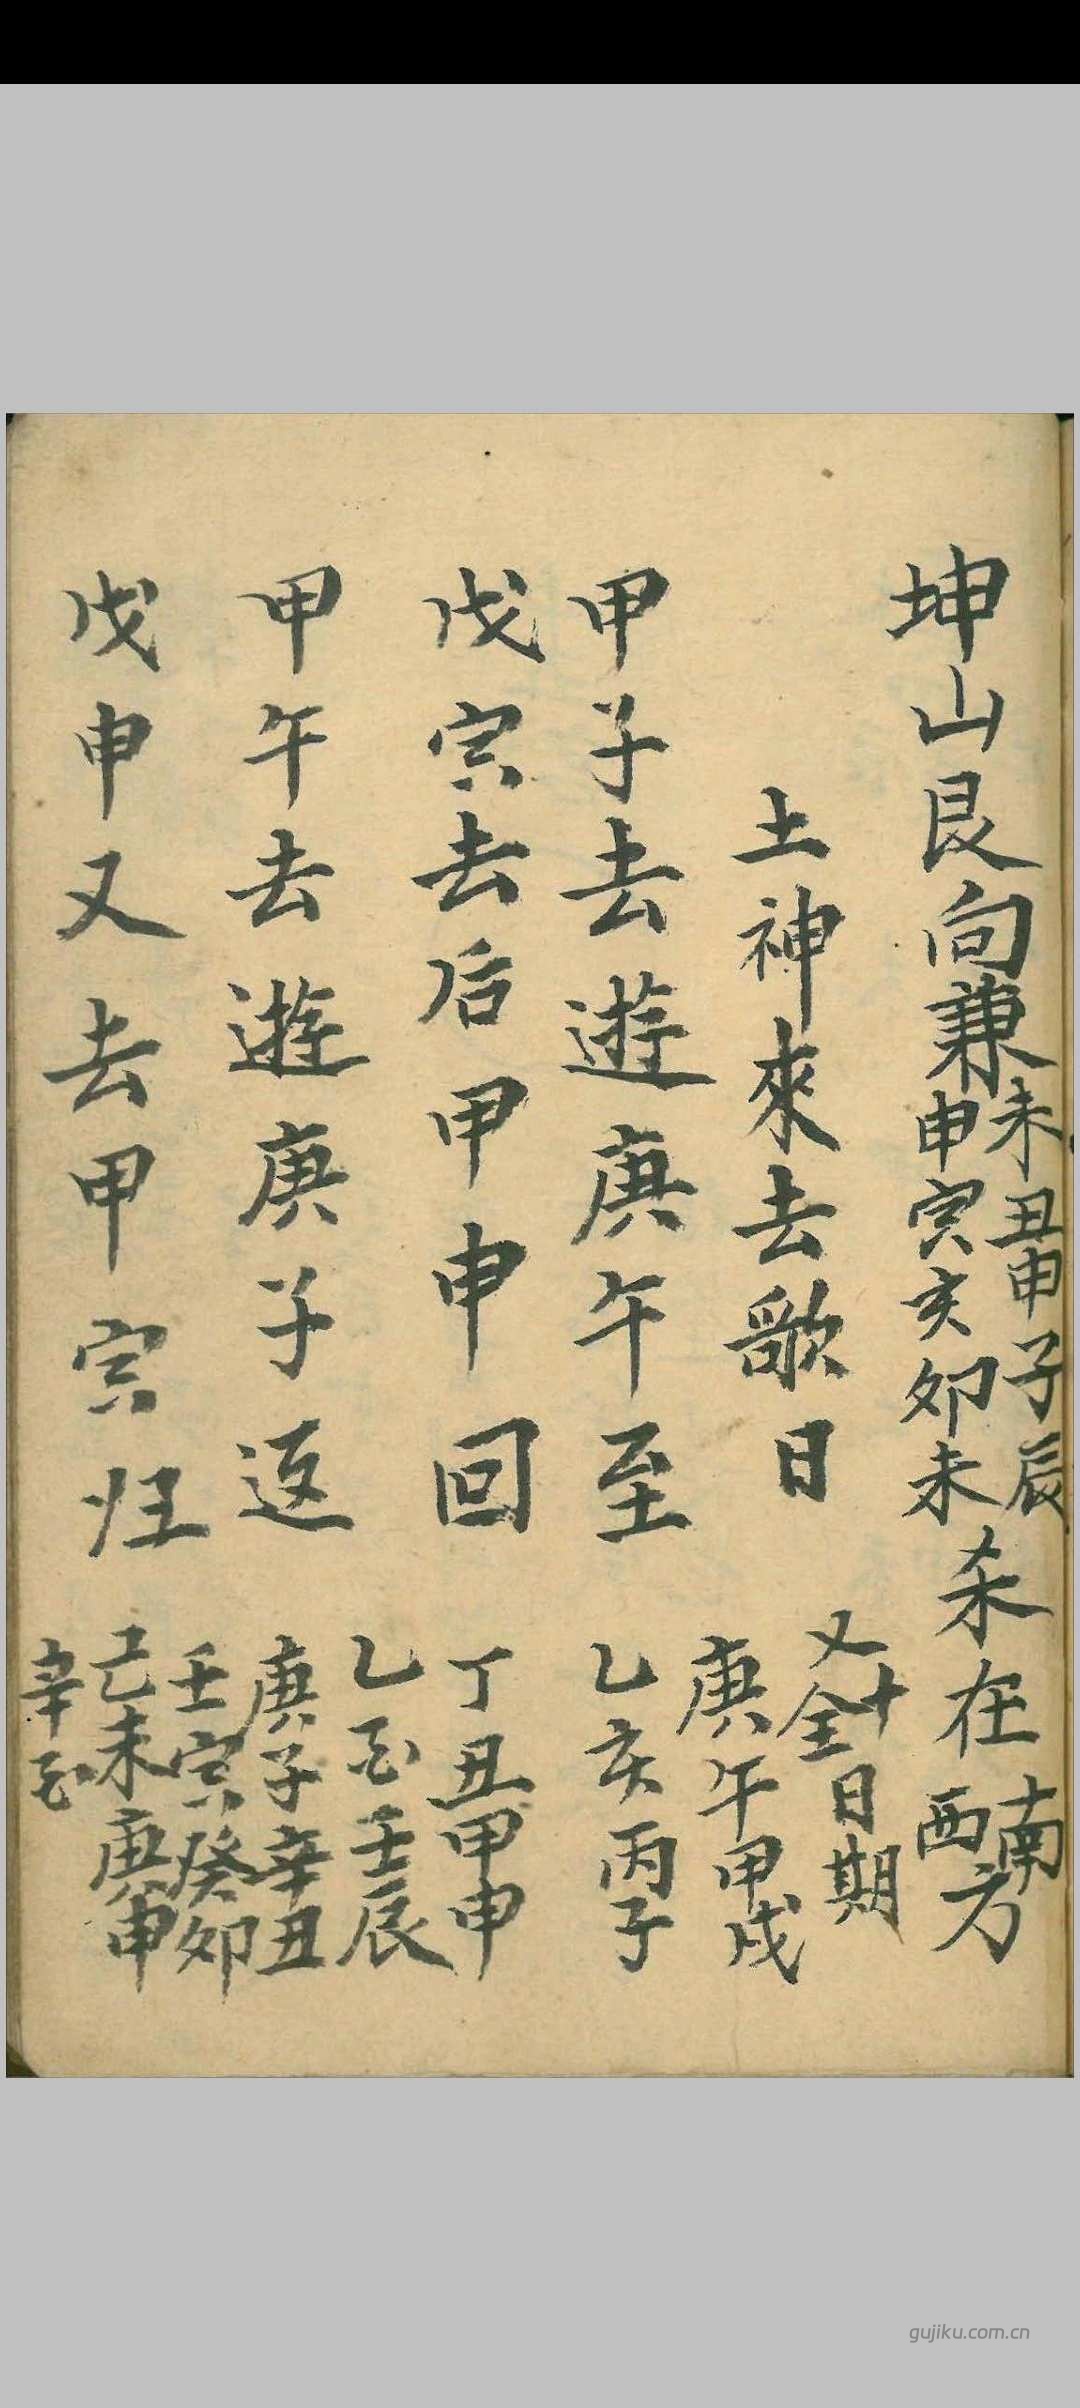 坤山艮向兼未丑申子辰
申寅亥卯未
杀在南
西方
土神來去歌曰
又十全日期
甲子去遊庚午至
庚午甲戌
乙亥丙子
戊寅去后甲申回
丁丑甲申
甲午去遊庚子返
乙酉壬辰
庚子辛丑
戊申又去甲寅归
壬寅癸卯
己未庚申
辛酉
gujiku.com.cn